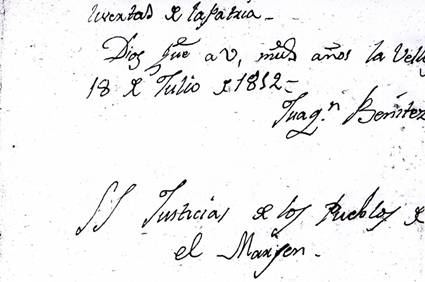 livertad de la patria_
Dios gue a V, ms as años la Vell
18 de Julio de 1812_
Juaqn Benitez
SS Justicias de los Pueblos de
el Margen.